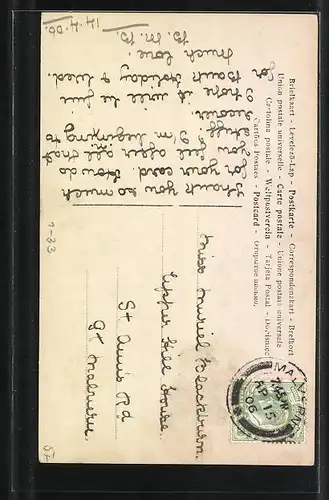 Briefkaart - Levelező-Lap - Postkarte - Correspondenzkart - Brefkort
Union postale universelle - Carte postale - Unione postale universale
Cartolina postale - Weltpostverein - Tarjeta Postal -
Cartões Postaes - Postcard - Открытое письмо.
Thank you so much
for your card. How do
you feel after all that
I'm beginning to
recover
I hope it will be fine
for Bank Holiday & Wed.
Much love
B. M. B.
14.4.06.
Miss Muriel Blackburn.
Upper Hill House.
St Anns Rd
Gt Malvern.
MALVERN
AP 15
06